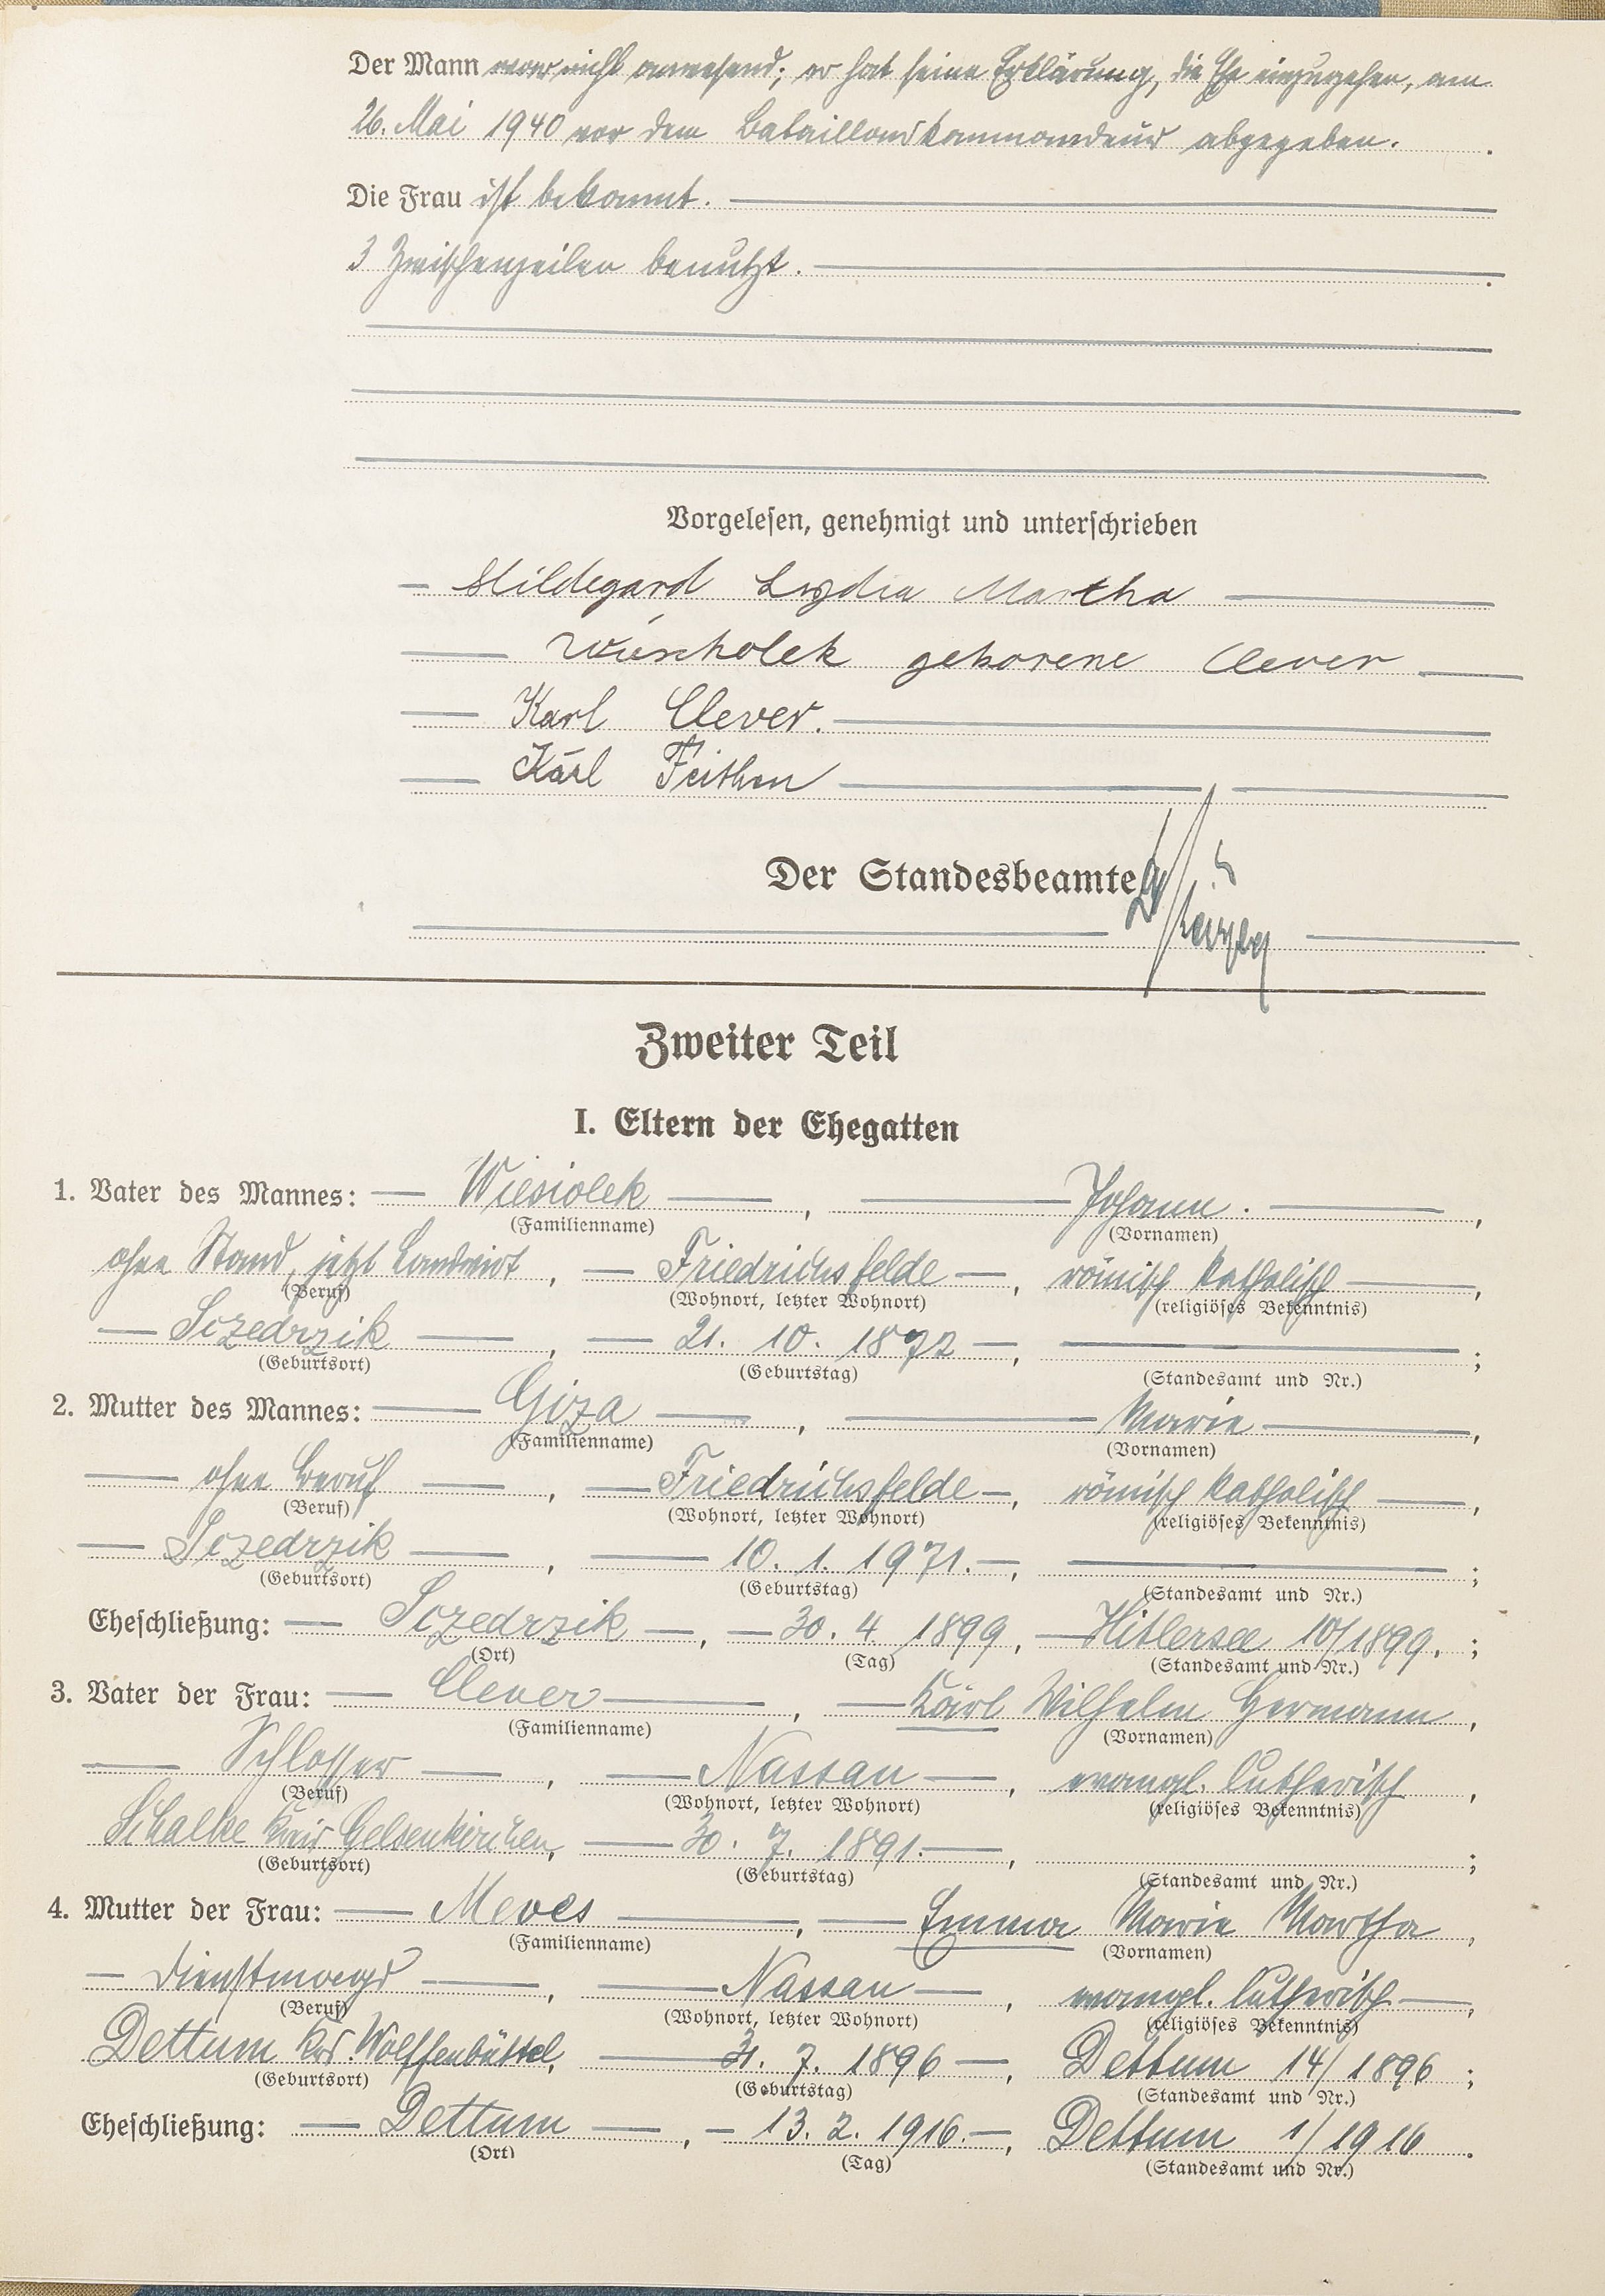 Der Mann war nicht anwesend; er hat seine Erklärung, die Ehe einzugehen, am
26. Mai 1940 vor dem Bataillonskommandeur abgegeben.
Die Frau ist bekannt.
3 Zwischenzeilen benutzt.
Vorgelesen, genehmigt und unterschrieben
Hildegard Lydia Martha
geborene Clever
Karl Clever.
Karl Feithen
Der Standesbeamte
Zweiter Teil
I. Eltern der Ehegatten
1. Vater des Mannes: Wiesiolek, Johann.,
(Familienname) (Vornamen)
ohne Stand, jetzt Landwirt, Friedrichsfelde, römisch katholisch,
(Beruf) (Wohnort, letzter Wohnort) (religiöses Bekenntnis)
Sczedrzik, 21. 10. 1872, ;
(Geburtsort) (Geburtstag) (Standesamt und Nr.)
2. Mutter des Mannes: Giza, Marie,
(Familienname) (Vornamen)
ohne Beruf, Friedrichsfelde, römisch katholisch,
(Beruf) (Wohnort, letzter Wohnort) (religiöses Bekenntnis)
Sczedrzik, 10. 1. 1971., ;
(Geburtsort) (Geburtstag) (Standesamt und Nr.)
Eheschließung: Sczedrzik, 30. 4. 1899, Hitlersee 10/1899. ;
(Ort) (Tag) (Standesamt und Nr.)
3. Vater der Frau: Clever, Karl Wilhelm Hermann,
(Familienname) (Vornamen)
Schlosser, Nassau, evangl. lutherisch,
(Beruf) (Wohnort, letzter Wohnort) (religiöses Bekenntnis)
Schalke Kreis Gelsenkirchen, 30. 7. 1891., ;
(Geburtsort) (Geburtstag) (Standesamt und Nr.)
4. Mutter der Frau: Meves, Emma Marie Martha,
(Familienname) (Vornamen)
Dienstmagd, Nassau, evangl. lutherisch,
(Beruf) (Wohnort, letzter Wohnort) (religiöses Bekenntnis)
Dettum Krs. Wolffenbüttel, 31. 7. 1896, Dettum 14/1896 ;
(Geburtsort) (Geburtstag) (Standesamt und Nr.)
Eheschließung: Dettum, 13. 2. 1916., Dettum 1/1916 .
(Ort) (Tag) (Standesamt und Nr.)